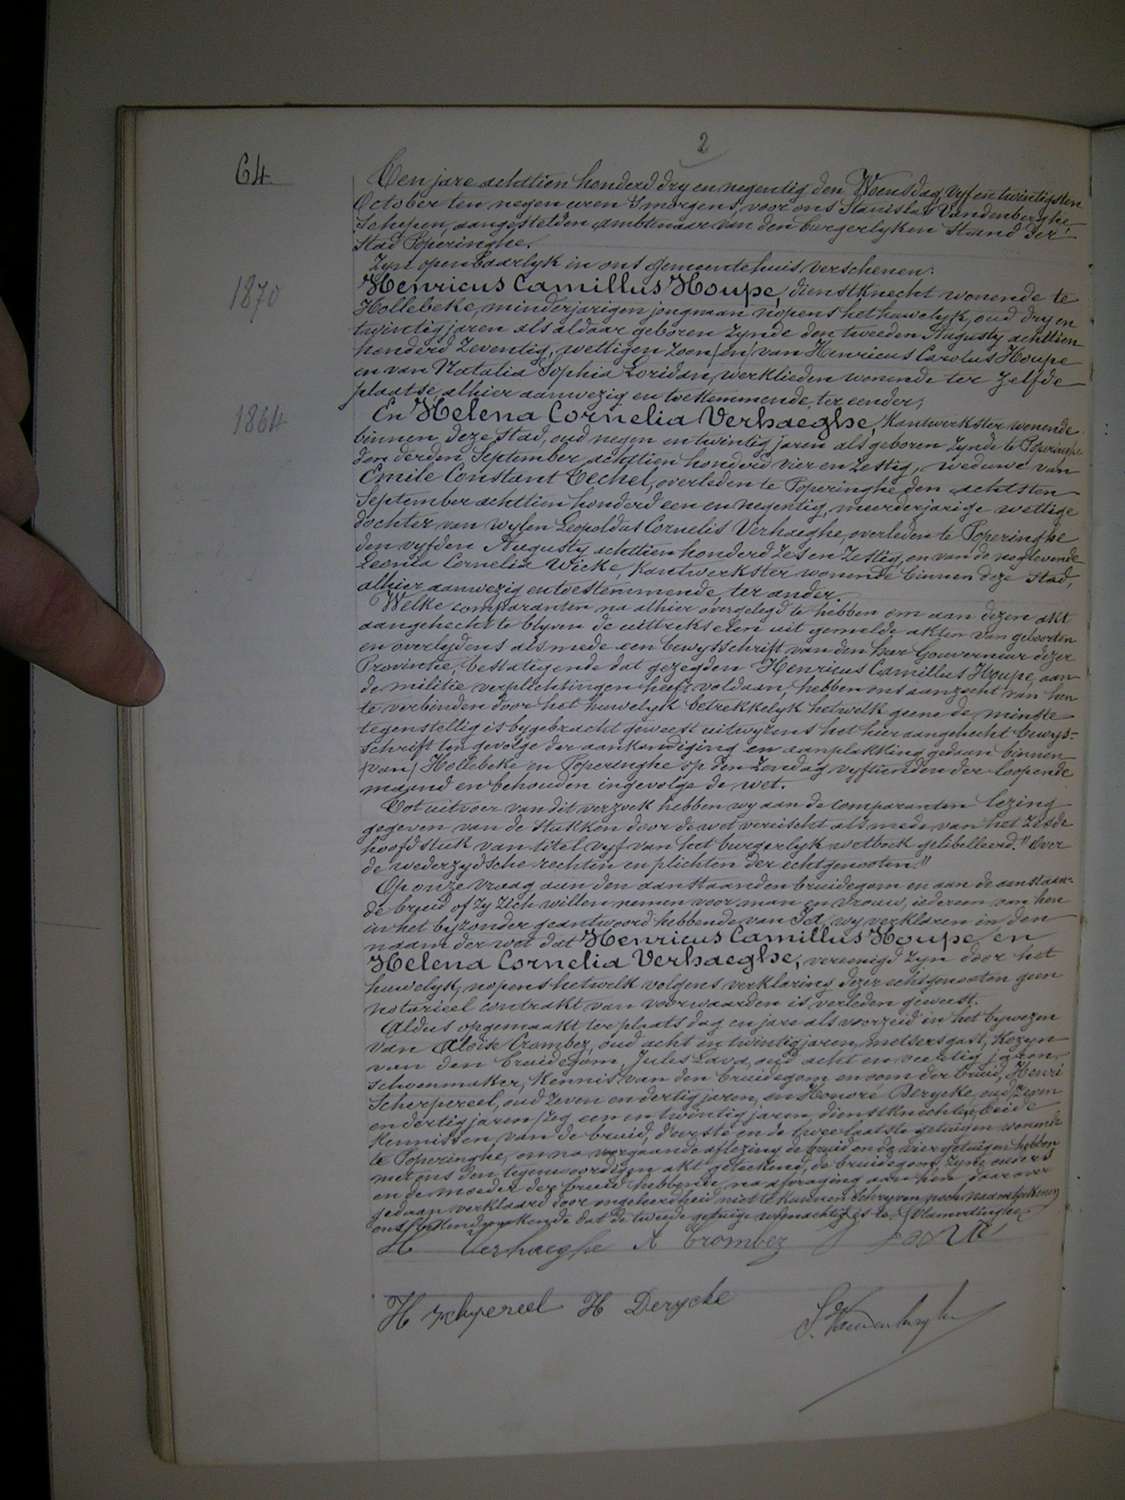 2
64
Den jare achttien honderd dry en negentig den Woensdag vyf en twintigsten
October ten negen uren 's morgens, voor ons Stanislas Vandenberghe
Schepen, aangestelden ambtenaar van den burgerlyken stand der
Stad Poperinghe.
Zyn openbaarlyk in ons gemeentehuis verschenen:
1870
Henricus Camillus Houpe, dienstknecht wonende te
Hollebeke, minderjarigen jongman nopens het huwelyk, oud dry en
twintig jaren als aldaar geboren zynde den tweeden Augusty achttien
honderd zeventig, wettigen zoon (en) van Henricus Carolus Houpe
en van Natalia Sophia Loridan, werklieden wonende ter zelfde
plaatse, alhier aanwezig en toestemmende, ter eender;
1864
En Helena Cornelia Verhaeghe, Kantwerkster wonende
binnen deze stad, oud negen en twintig jaren als geboren zynde te Poperinghe
den derden September achttien honderd vier en zestig, weduwe van
Emile Constant Techel, overleden te Poperinghe den achtsten
September achttien honderd een en negentig, meerderjarige wettige
dochter van wylen Leopoldus Cornelis Verhaeghe, overleden te Poperinghe
den vyfden Augusty achttien honderd zes en zestig, en van de nog levende
Leonia Cornelia Wicke, Kantwerkster wonende binnen deze stad,
alhier aanwezig en toestemmende, ter ander.
Welke comparanten na alhier overgelegd te hebben om aan dezen akt
aangehecht te blyven de uittreksels uit gemelde akten van geboorten
en overlydens alsmede een bewysschrift van den heer Gouverneur dezer
Provincie, bestatigende dat gezegden Henricus Camillus Houpe, aan
de militie verplichtingen heeft voldaan, hebben ons aanzocht van hen
te verbinden door het huwelyk betrekkelyk hetwelk geene de minste
tegenstellig is bygebracht geweest uitwyzens het hier aangehecht bewys-
schrift ten gevolge der aankondiging en aanplakking gedaan binnen
(van) Hollebeke en Poperinghe op den Zondag vyftienden der loopende
maand en behouden ingevolge de wet.
Tot uitvoer van dit verzoek hebben wy aan de comparanten lezing
gegeven van de stukken door de wet vereischt alsmede van het zesde
hoofdstuk van titel vyf van het burgerlyk wetboek gelibelleerd "Over
de wederzydsche rechten en plichten der echtgenooten."
Op onze vraag aan den aanstaanden bruidegom en aan de aanstaan-
de bruid of zy zich willen nemen voor man en vrouw, iedereen van hen
in het byzonder geantwoord hebbende van Ja, wy verklaren in den
naam der wet dat Henricus Camillus Houpe en
Helena Cornelia Verhaeghe, vereenigd zyn door het
huwelyk, nopens hetwelk volgens verklaring dezer echtgenooten geen
notarieel contrakt van voorwaarden is verleden geweest.
Aldus opgemaakt ter plaats dag en jare als voorzeid in het bywezen
van Aloise Crombez, oud acht en twintig jaren, metsersgast, Kozyn
van den bruidegom, Jules Lava, oud acht en veertig jaren,
schoenmaker, Kennis van den bruidegom en oom der bruid, Henri
Scherpereel, oud zeven en dertig jaren, en Honoré Derycke, oud
en dertig jaren, zeg een en twintig jaren, dienstknechten, beide
Kennissen van de bruid, d'eerste en de twee laatste getuigen wonende
te Poperinghe, en na voorgaande aflezing de bruid en de vier getuigen hebben
met ons den tegenwoordigen akt geteekend, de bruidegom, zyne ouders
en de moeder der bruid hebbende, na afvraging aan hen daarover
gedaan verklaard door ongeleerdheid niet te kunnen schryven noch naamteekenen
dat de tweede getuige woonachtig is te Vlamertinghe
H Verhaeghe A Crombez
H Scherpereel H Derycke
S. Vandenberghe